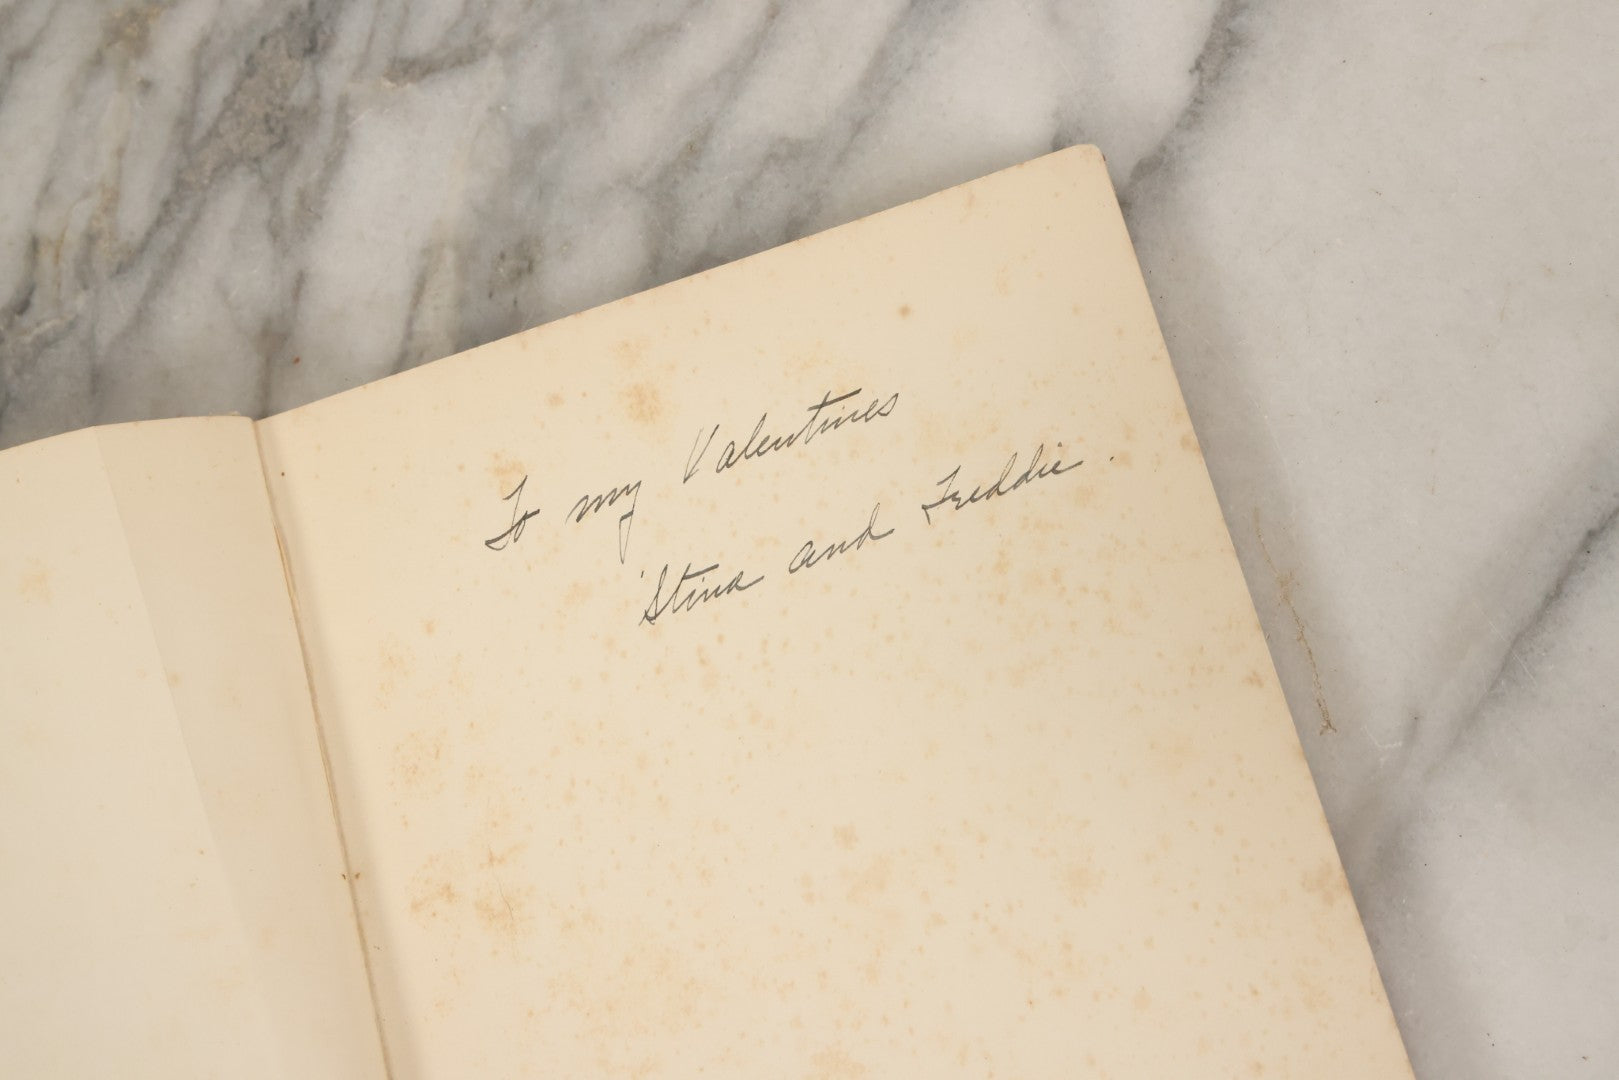 To my Valentines
'Stina and Freddie.